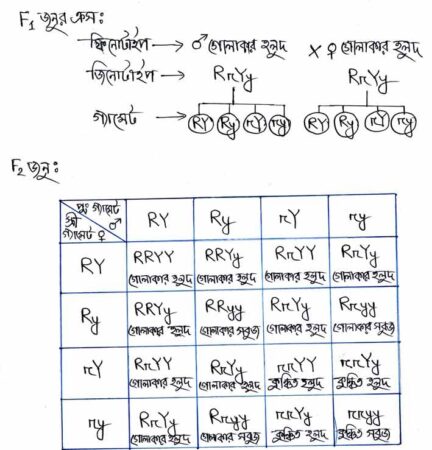 F₁ জনুর ক্রস:
ফিনোটাইপ → ♂ গোলাকার হলুদ × ♀ গোলাকার হলুদ
জিনোটাইপ → RrYy RrYy
গ্যামেট → RY Ry rY ry RY Ry rY ry
F₂ জনু:
পুং গ্যামেট ♂
স্ত্রী গ্যামেট ♀
RY Ry rY ry
RY RRYY RRYy RrYY RrYy
গোলাকার হলুদ গোলাকার হলুদ গোলাকার হলুদ গোলাকার হলুদ
Ry RRYy RRyy RrYy Rryy
গোলাকার হলুদ গোলাকার সবুজ গোলাকার হলুদ গোলাকার সবুজ
rY RrYY RrYy rrYY rrYy
গোলাকার হলুদ গোলাকার হলুদ কুঞ্চিত হলুদ কুঞ্চিত হলুদ
ry RrYy Rryy rrYy rryy
গোলাকার হলুদ গোলাকার সবুজ কুঞ্চিত হলুদ কুঞ্চিত সবুজ